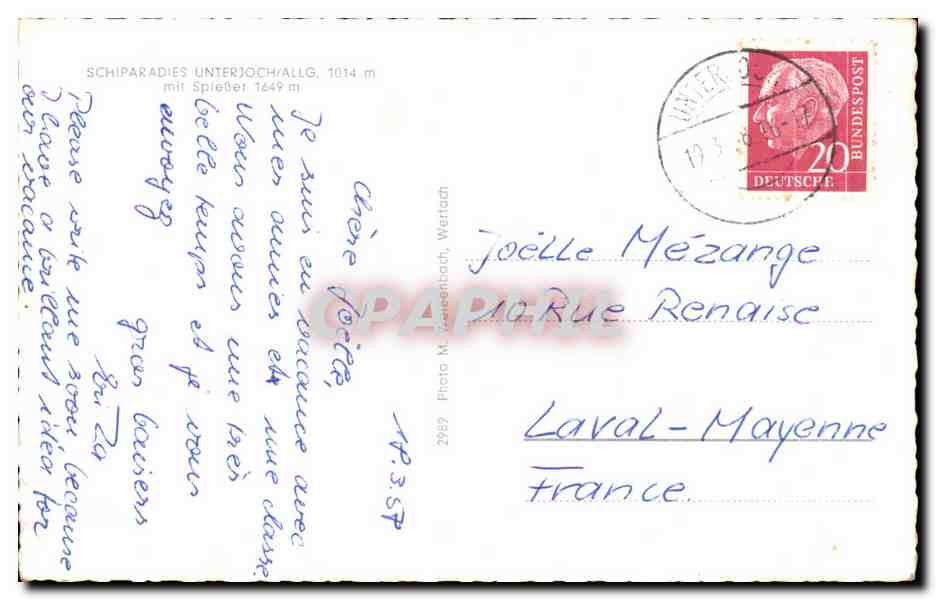 SCHIPARADIES UNTERJOCH/ALLG. 1014 m
mit Spießer 1649 m
18.3.58
Chère Joëlle,
Je suis en vacance avec
mes amies et une classe.
Nous avons une très
belle temps et je vous
envoyez
gros baisers
Please write me soon because
I have a brillant idea for
our vacance.
2989 Photo M. Wertach
Joëlle Mézange
10 Rue Renaise
Laval-Mayenne
France.
20
DEUTSCHE
BUNDESPOST
CPAPHIL